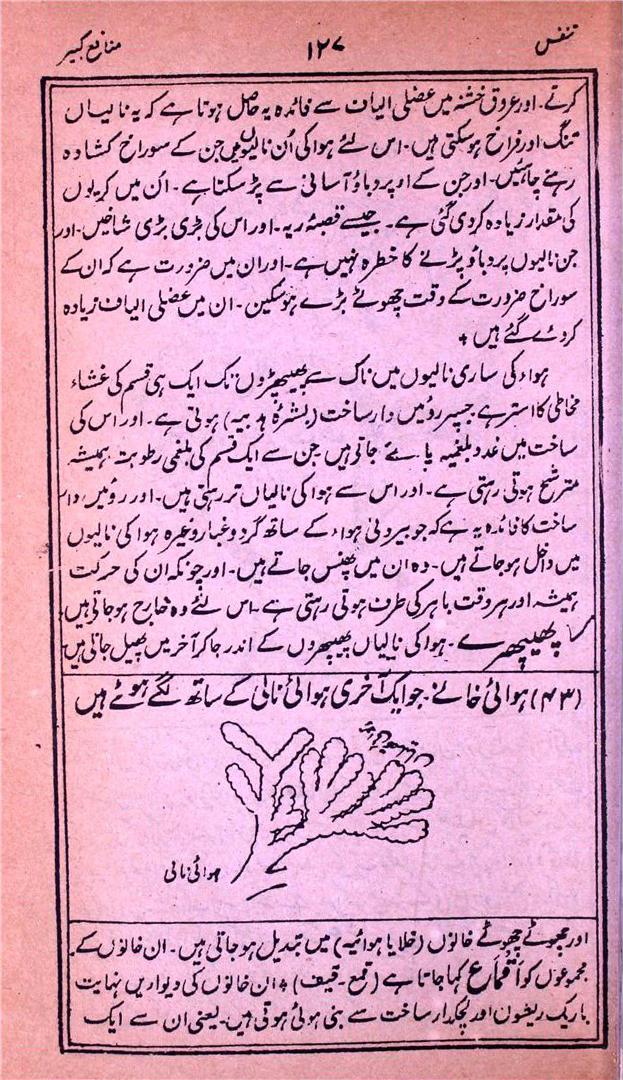 تنفس ۱۲۷ منافع کبیر
کرتے۔ اور عروق خشنہ میں عضلی الیاف سے فائدہ یہ حاصل ہوتا ہے کہ یہ نالیاں
تنگ اور فراخ ہوسکتی ہیں۔ اس لئے ہوا کی اُن نالیوں میں جن کے سوراخ کشادہ
رہنے چاہئیں۔ اور جن کے اوپر دباؤ آسانی سے پڑ سکتا ہے۔ اُن میں کریوں
کی مقدار زیادہ کردی گئی ہے۔ جیسے قصبۂ ریہ۔ اور اس کی بڑی بڑی شاخیں۔ اور
جن نالیوں پر دباؤ پڑنے کا خطرہ نہیں ہے۔ اور ان میں ضرورت ہے کہ ان کے
سوراخ ضرورت کے وقت چھوٹے بڑے ہوسکیں۔ ان میں عضلی الیاف زیادہ
کردئے گئے ہیں +
ہواء کی ساری نالیوں میں ناک سے پھیپھڑوں تک ایک ہی قسم کی غشاء
مخاطی کا استر ہے جسپر روئیں دار ساخت (بشرۂ ہدبیہ) ہوتی ہے۔ اور اس کی
ساخت میں غدد بلغمیہ پائے جاتی ہیں جن سے ایک قسم کی بلغمی رطوبت ہمیشہ
مترشح ہوتی رہتی ہے۔ اور اس سے ہوا کی نالیاں تر رہتی ہیں۔ اور روئیں دار
ساخت کا فائدہ یہ ہے کہ جو بیرونی ہواء کے ساتھ گرد و غبار وغیرہ ہوا کی نالیوں
میں داخل ہوجاتے ہیں۔ وہ ان میں پھنس جاتے ہیں۔ اور چونکہ ان کی حرکت
ہمیشہ اور ہر وقت باہر کی طرف ہوتی رہتی ہے۔ اس لئے وہ خارج ہوجاتی ہیں
پھیپھڑے۔ ہوا کی نالیاں پھیپھڑوں کے اندر جاکر آخر میں پھیل جاتی ہیں
(۴۳) ہوائی خانے۔ جو ایک آخری ہوائی نالی کے ساتھ لگے ہوئے ہیں
ہوائی نالی
اور چھوٹے چھوٹے خانوں (خلایا ہوائیہ) میں تبدیل ہوجاتی ہیں۔ ان خانوں کے
مجموعوں کو اَقماع کہا جاتا ہے (قمع۔ قیف) + ان خانوں کی دیواریں نہایت
باریک ریشوں اور لچکدار ساخت سے بنی ہوئی ہوتی ہیں۔ یعنی ان سے ایک